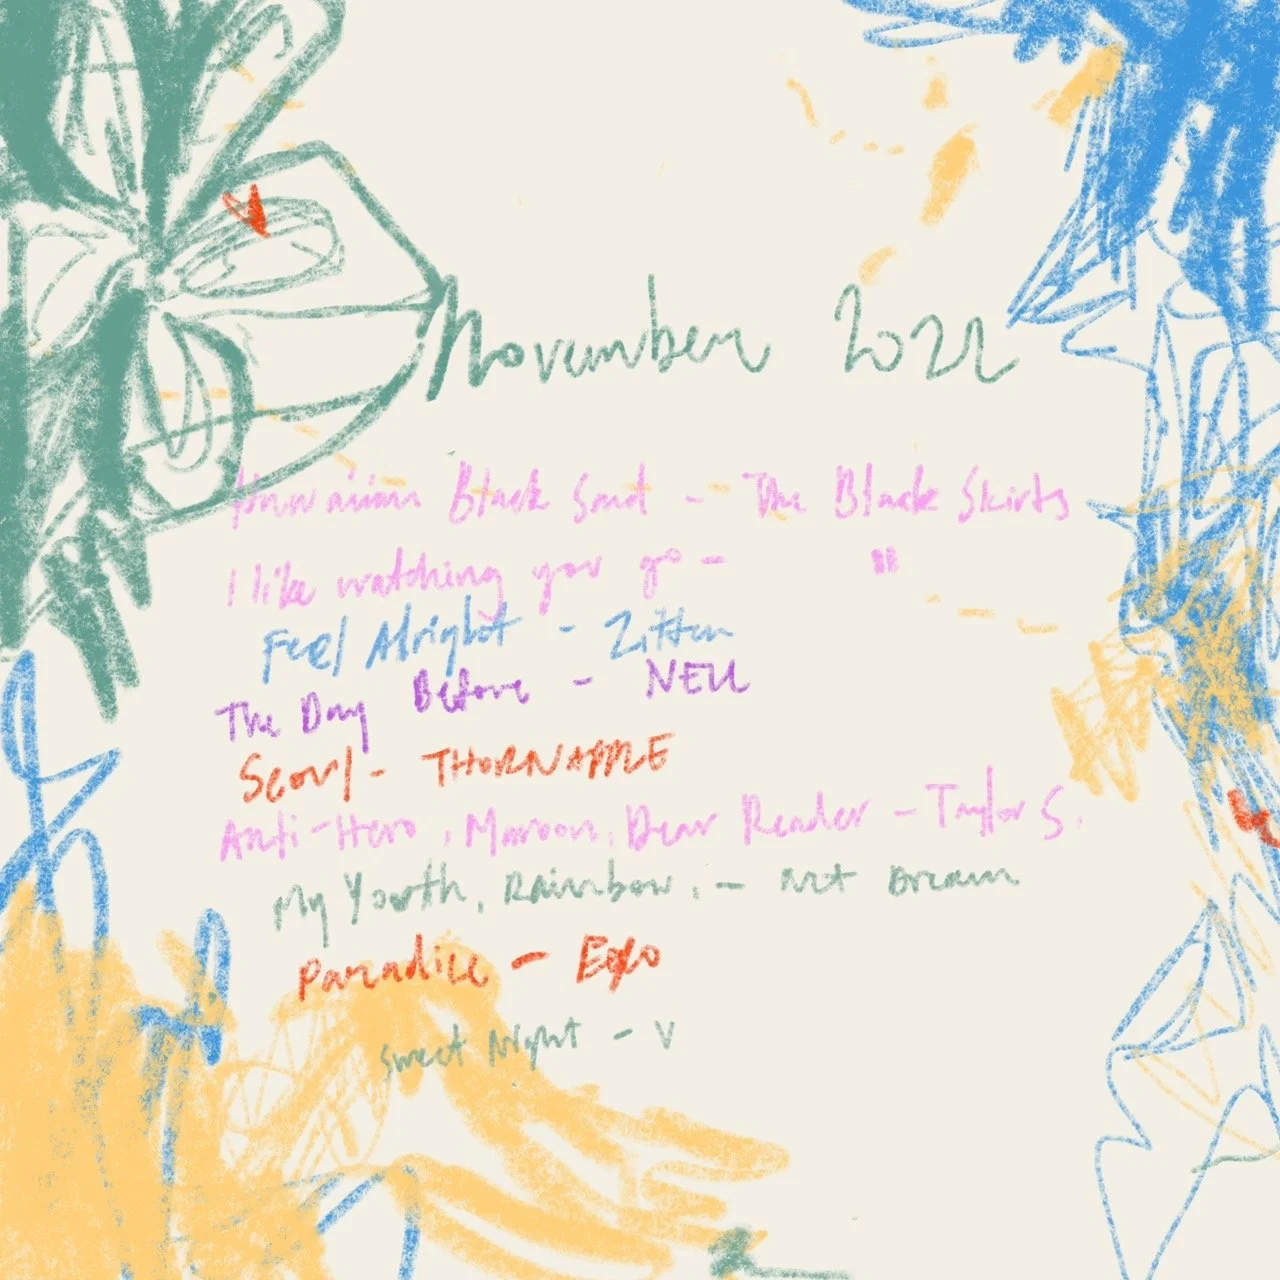 November 2022
Hawaiian Black Sand - The Black Skirts
I like watching you go - "
Feel Alright - Zitten
The Day Before - NELL
Seoul - THORNAPPLE
Anti-Hero, Maroon, Dear Reader - Taylor S.
My Youth, Rainbow, - Nct Dream
Paradise -
Sweet Night - V